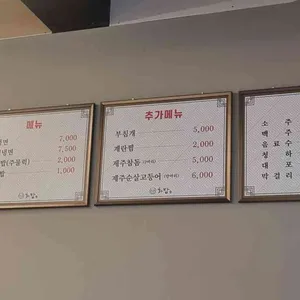 메뉴
7,000
냉면 7,500
밥(주물럭) 2,000
밥 1,000
추가메뉴
부침개 5,000
계란찜 2,000
제주참돔 5,000
제주순살고등어 6,000
소 주
맥 주
음 료 수
청 하
대 포
막 걸 리